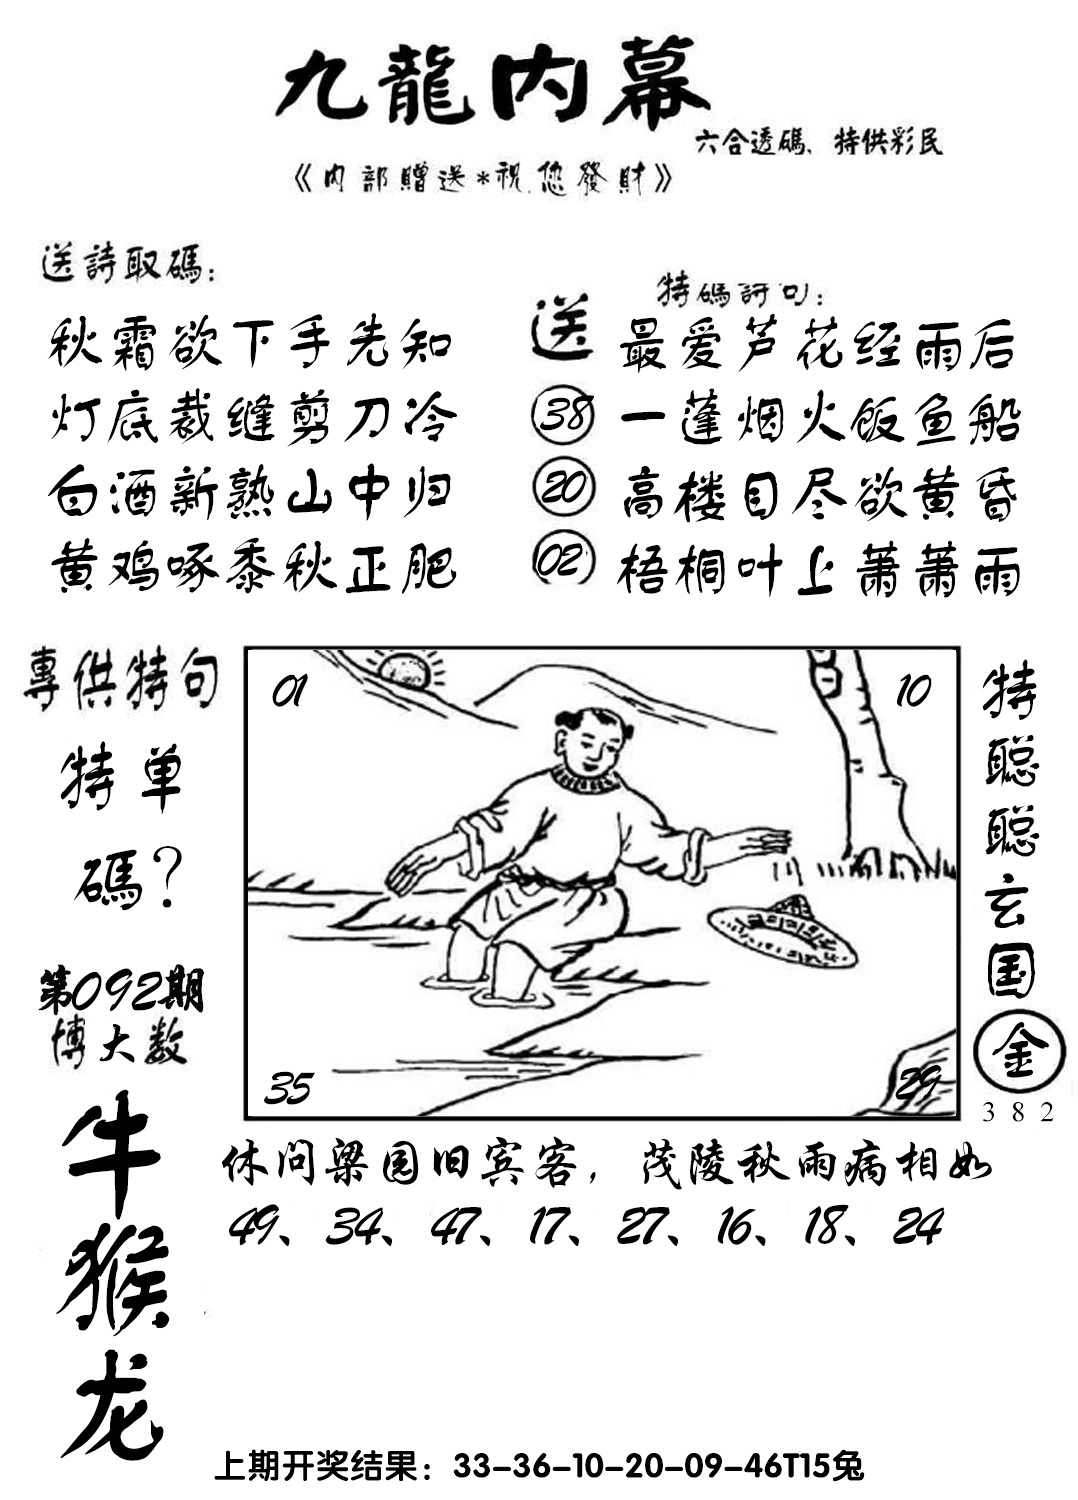 九龍内幕
六合透碼、特供彩民
《内部贈送*祝您發財》
送詩取碼：
秋霜欲下手先知
灯底裁缝剪刀冷
白酒新熟山中归
黄鸡啄黍秋正肥
送
38
20
02
特碼詩句：
最爱芦花经雨后
一蓬烟火飯鱼船
高楼目尽欲黄昏
梧桐叶上萧萧雨
專供特句
特单
碼？
第092期
博大数
牛
猴
龙
01
10
35
29
特聪聪玄国
金
382
休问梁园旧宾客，茂陵秋雨病相如
49、34、47、17、27、16、18、24
上期开奖结果：33-36-10-20-09-46T15兔